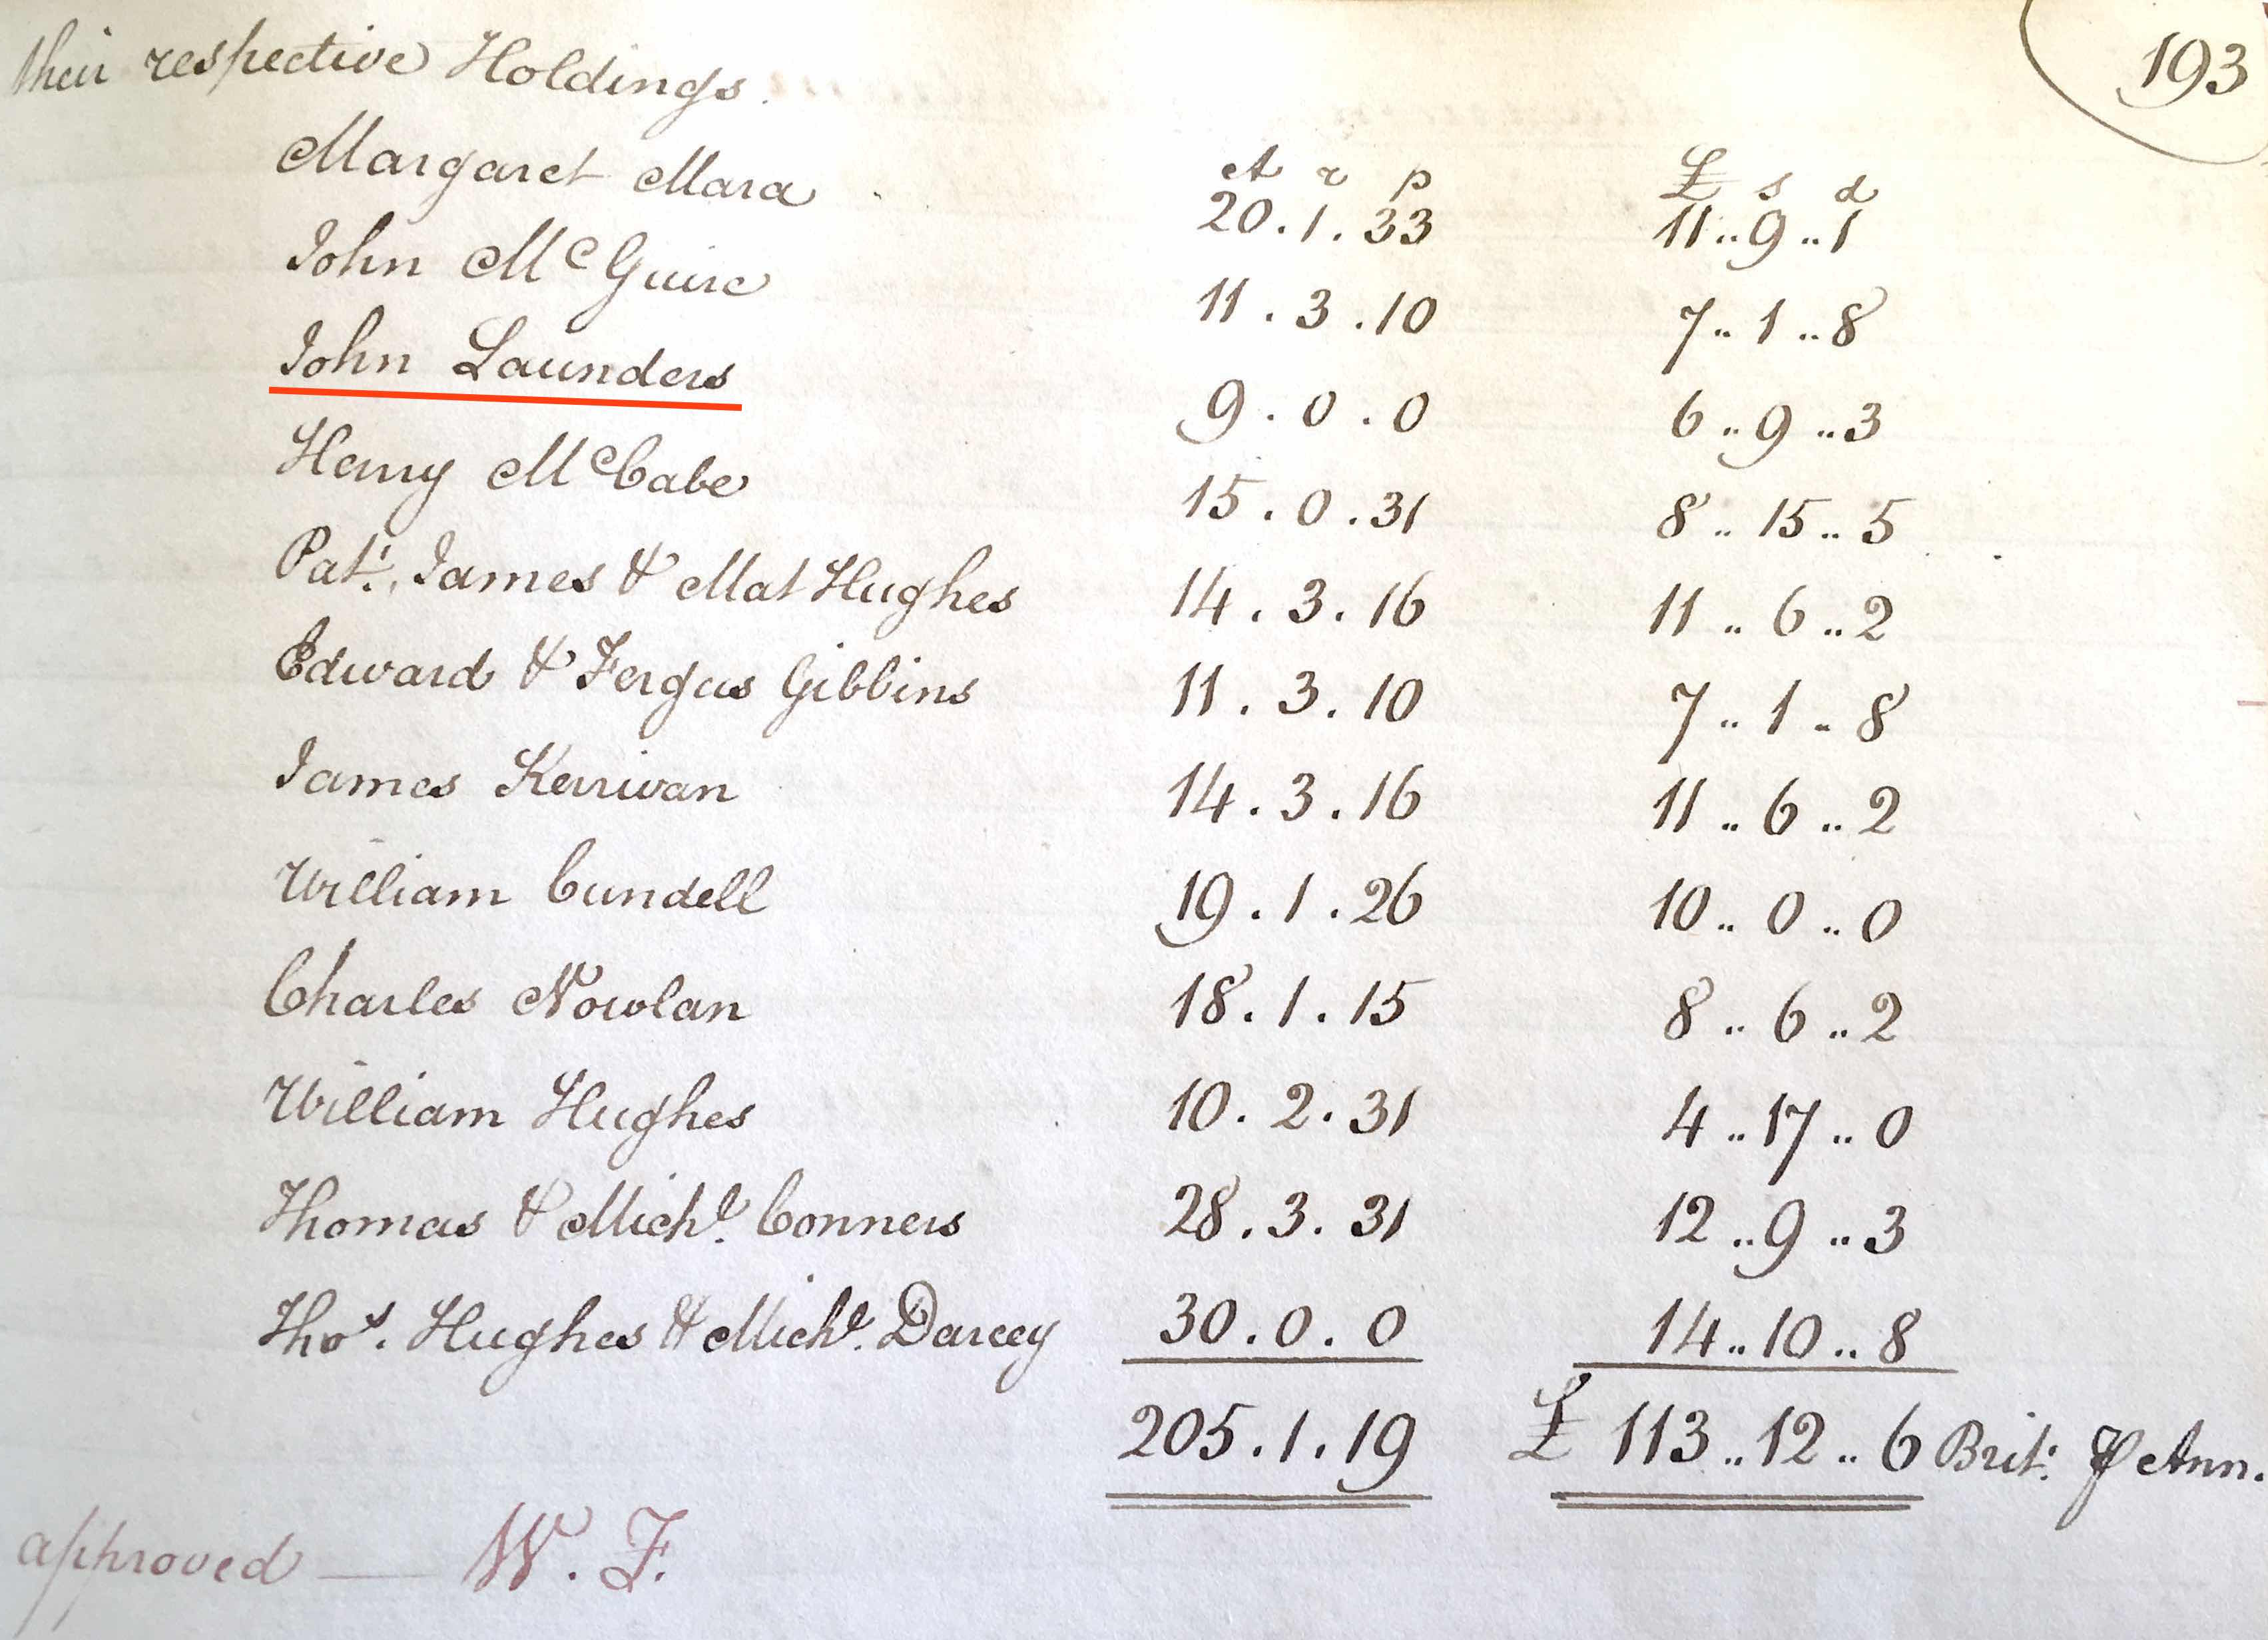 193
their respective Holdings.
A r p £ s d
Margaret Mara 20.1.33 11..9..1
John McGuire 11.3.10 7..1..8
John Launders 9.0.0 6..9..3
Henry McCabe 15.0.31 8..15..5
Patt., James & Mat Hughes 14.3.16 11..6..2
Edward & Fergus Gibbins 11.3.10 7..1..8
James Kerrivan 14.3.16 11..6..2
William Cundell 19.1.26 10..0..0
Charles Nowlan 18.1.15 8..6..2
William Hughes 10.2.31 4..17..0
Thomas & Michl. Conners 28.3.31 12..9..3
Thos. Hughes & Michl. Darcey 30.0.0 14..10..8
205.1.19 £ 113..12..6 Brit: ⅌ Ann.
approved — W. F.